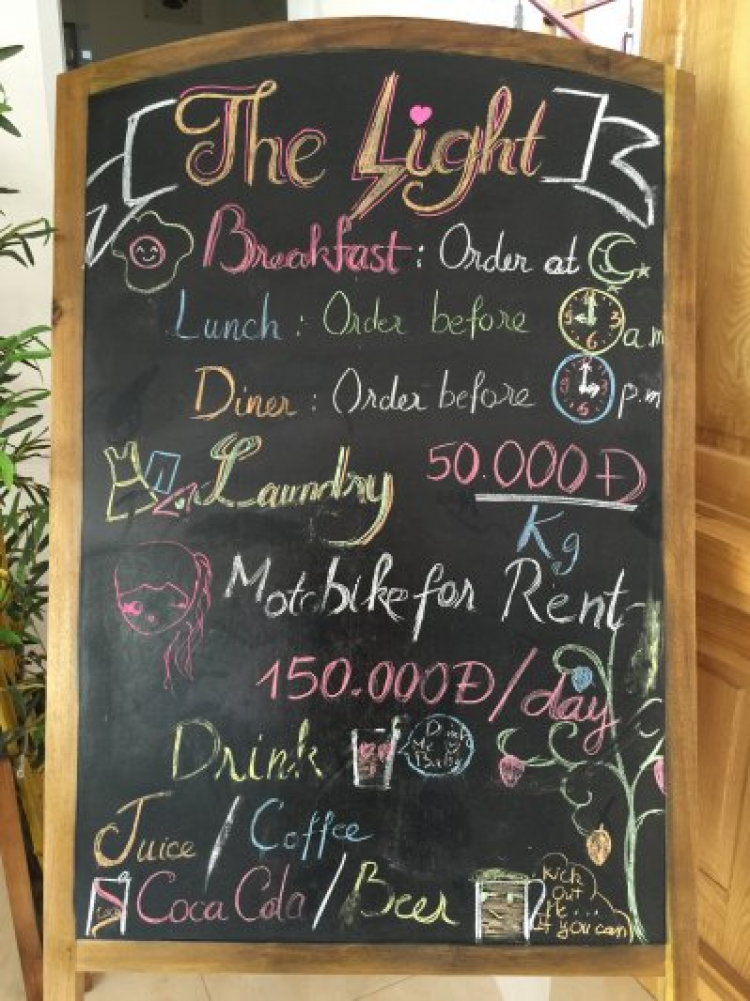 The Light
Breakfast : Order at
Lunch : Order before a.m
Diner : Order before p.m
Laundry 50.000Đ
Kg
Motobike for Rent
150.000Đ/day
Drink
Drink
Me
Baby
Juice / Coffee
Coca Cola / Beer
Kick
Out
Me...
If you can